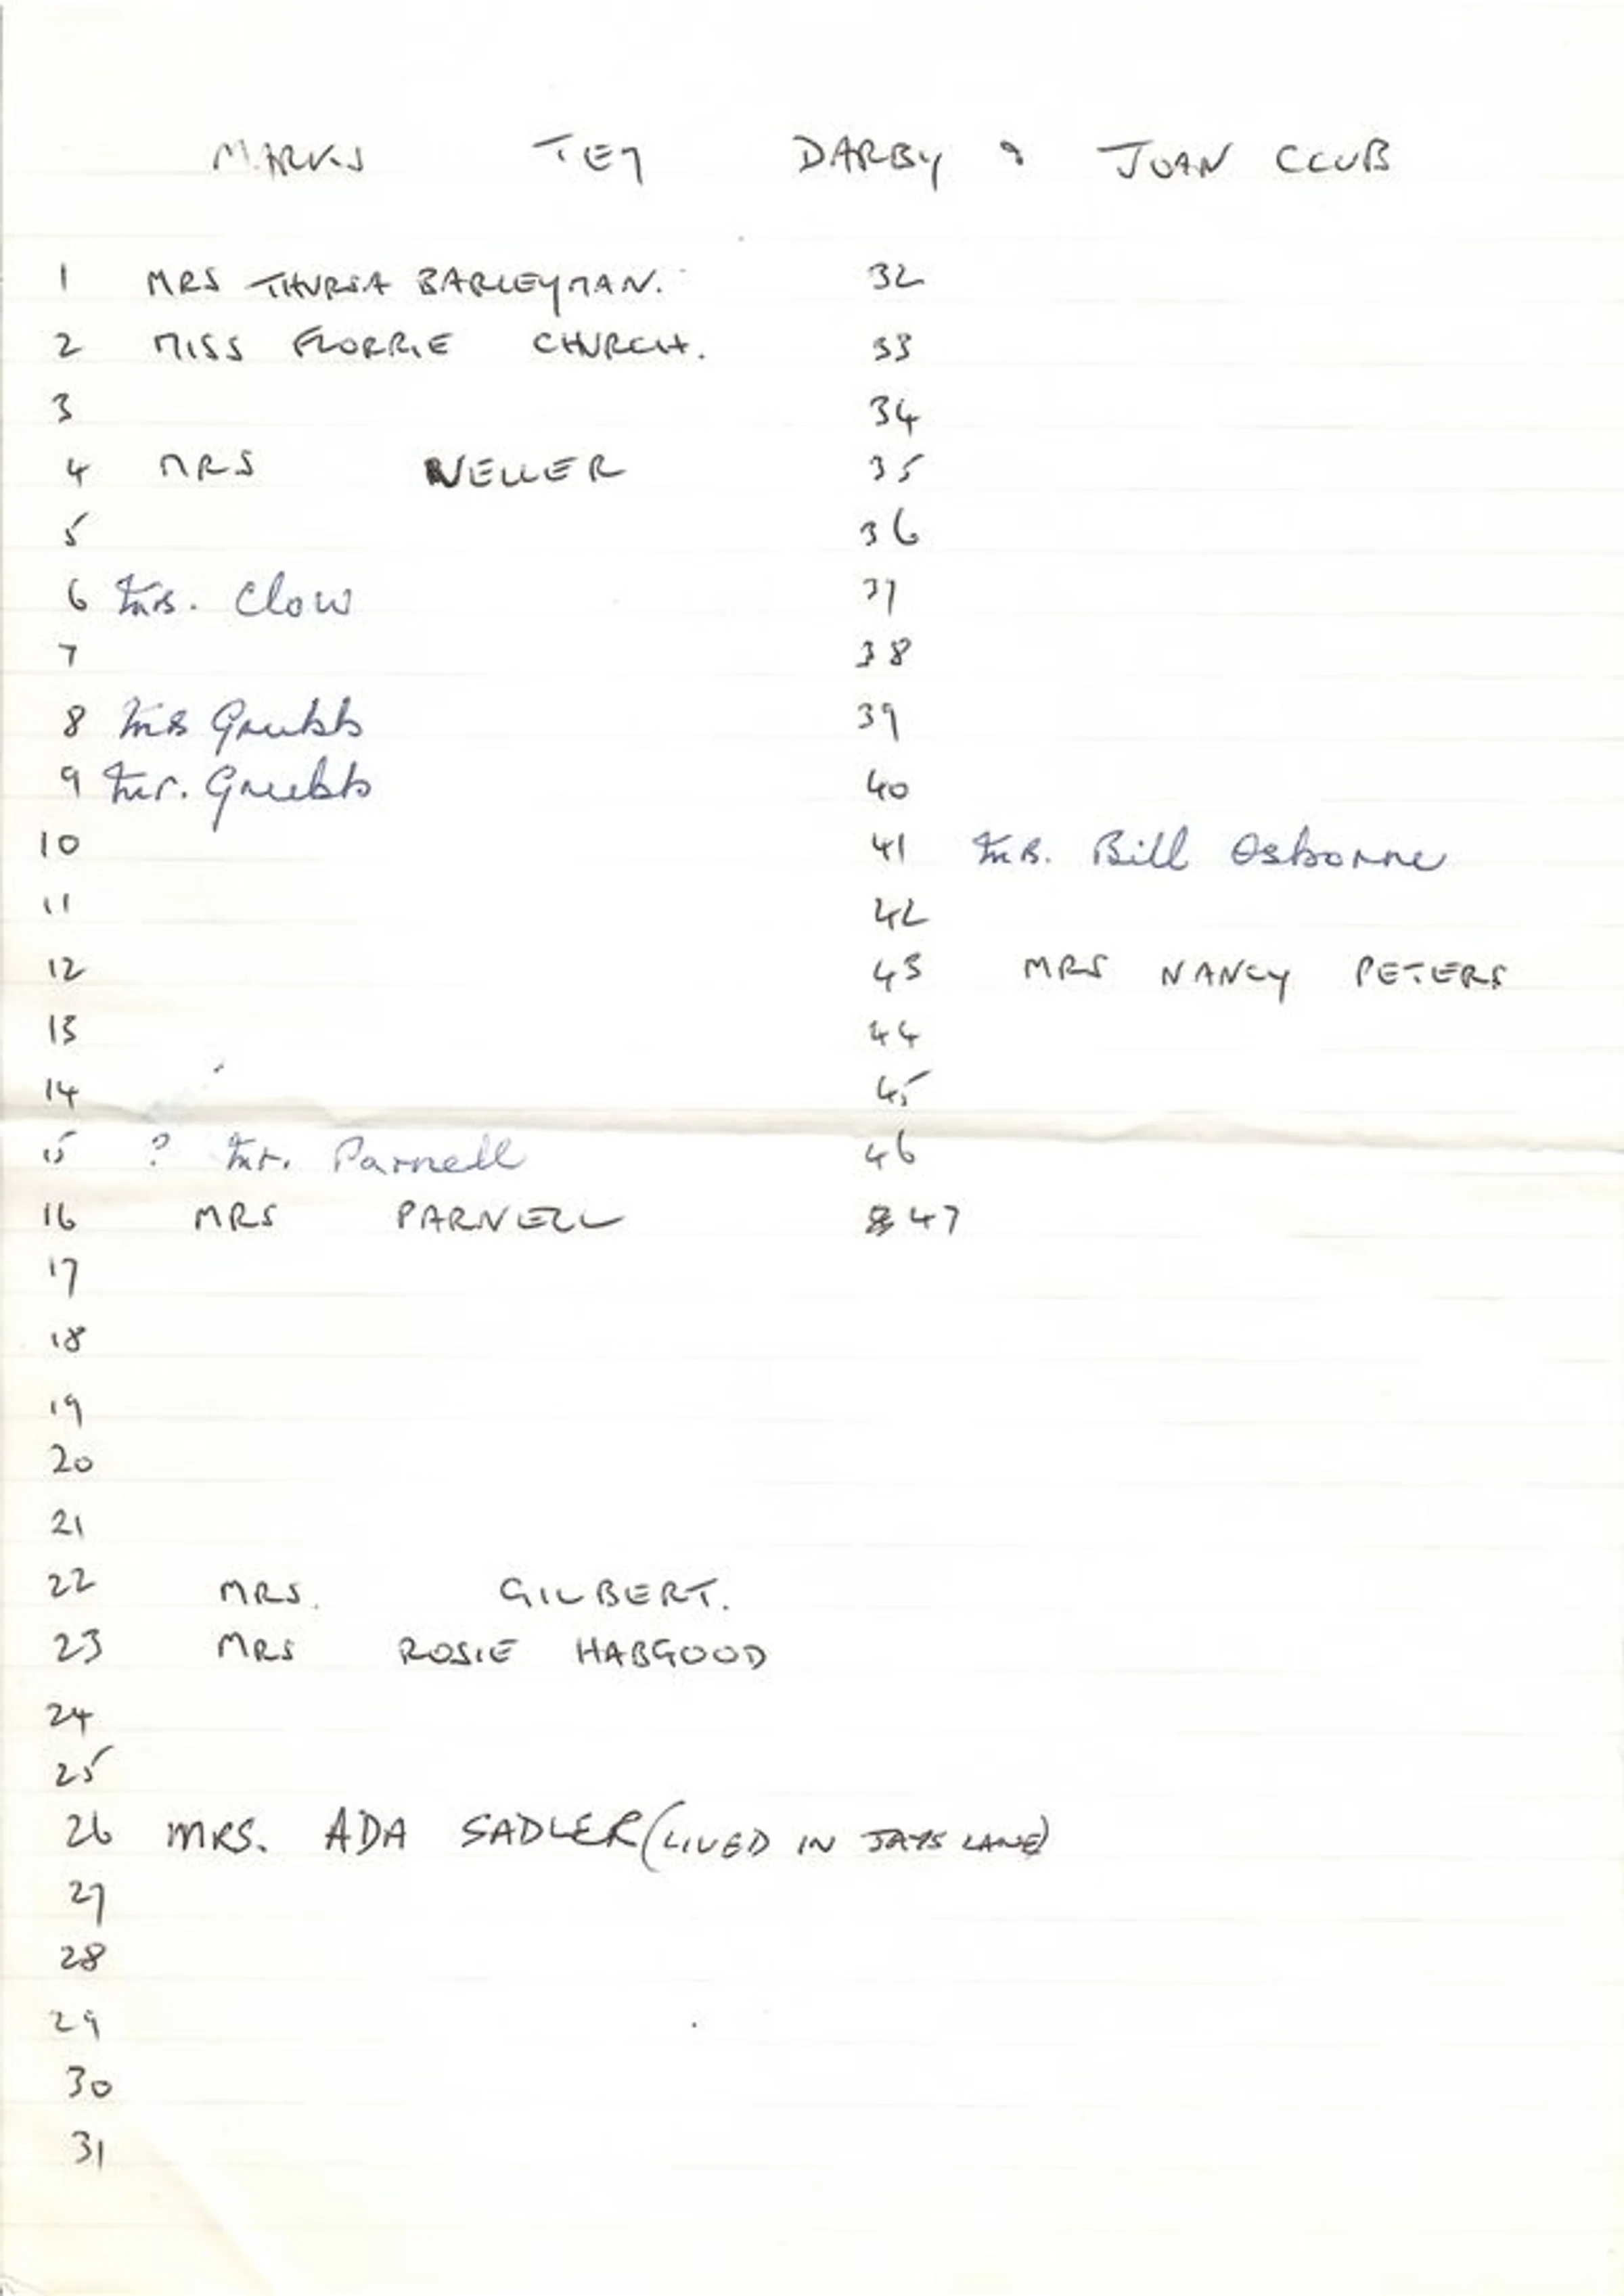 MARKS TEY DARBY & JOAN CLUB
1 MRS THURSA BARLEYMAN.
2 MISS FLORRIE CHURCH.
3
4 MRS NELLER
5
6 Mrs. Clow
7
8 Mrs Grubb
9 Mr. Grubb
10
11
12
13
14
15 ? Mr. Parnell
16 MRS PARNELL
17
18
19
20
21
22 MRS. GILBERT.
23 MRS ROSIE HABGOOD
24
25
26 MRS. ADA SADLER (LIVED IN JAYS LANE)
27
28
29
30
31
32
33
34
35
36
37
38
39
40
41 Mrs. Bill Osborne
42
43 MRS NANCY PETERS
44
45
46
47